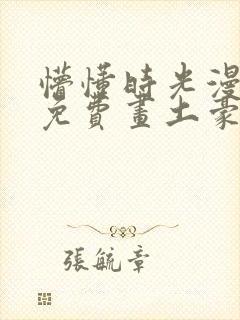 懵懂時光漫
免費畫土豪
張毓章